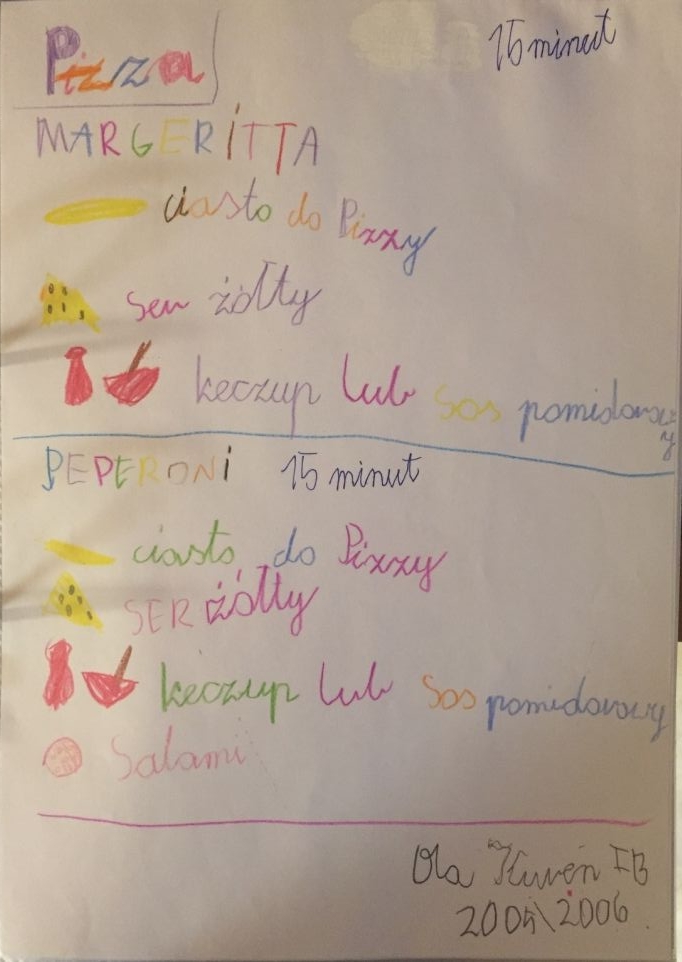 Pizza
15 minut
MARGERITTA
ciasto do Pizzy
Ser żółty
keczup lub Sos pomidorowy
PEPERONI 15 minut
ciasto do Pizzy
SER żółty
keczup lub Sos pomidorowy
Salami
Ola IB
2005\2006